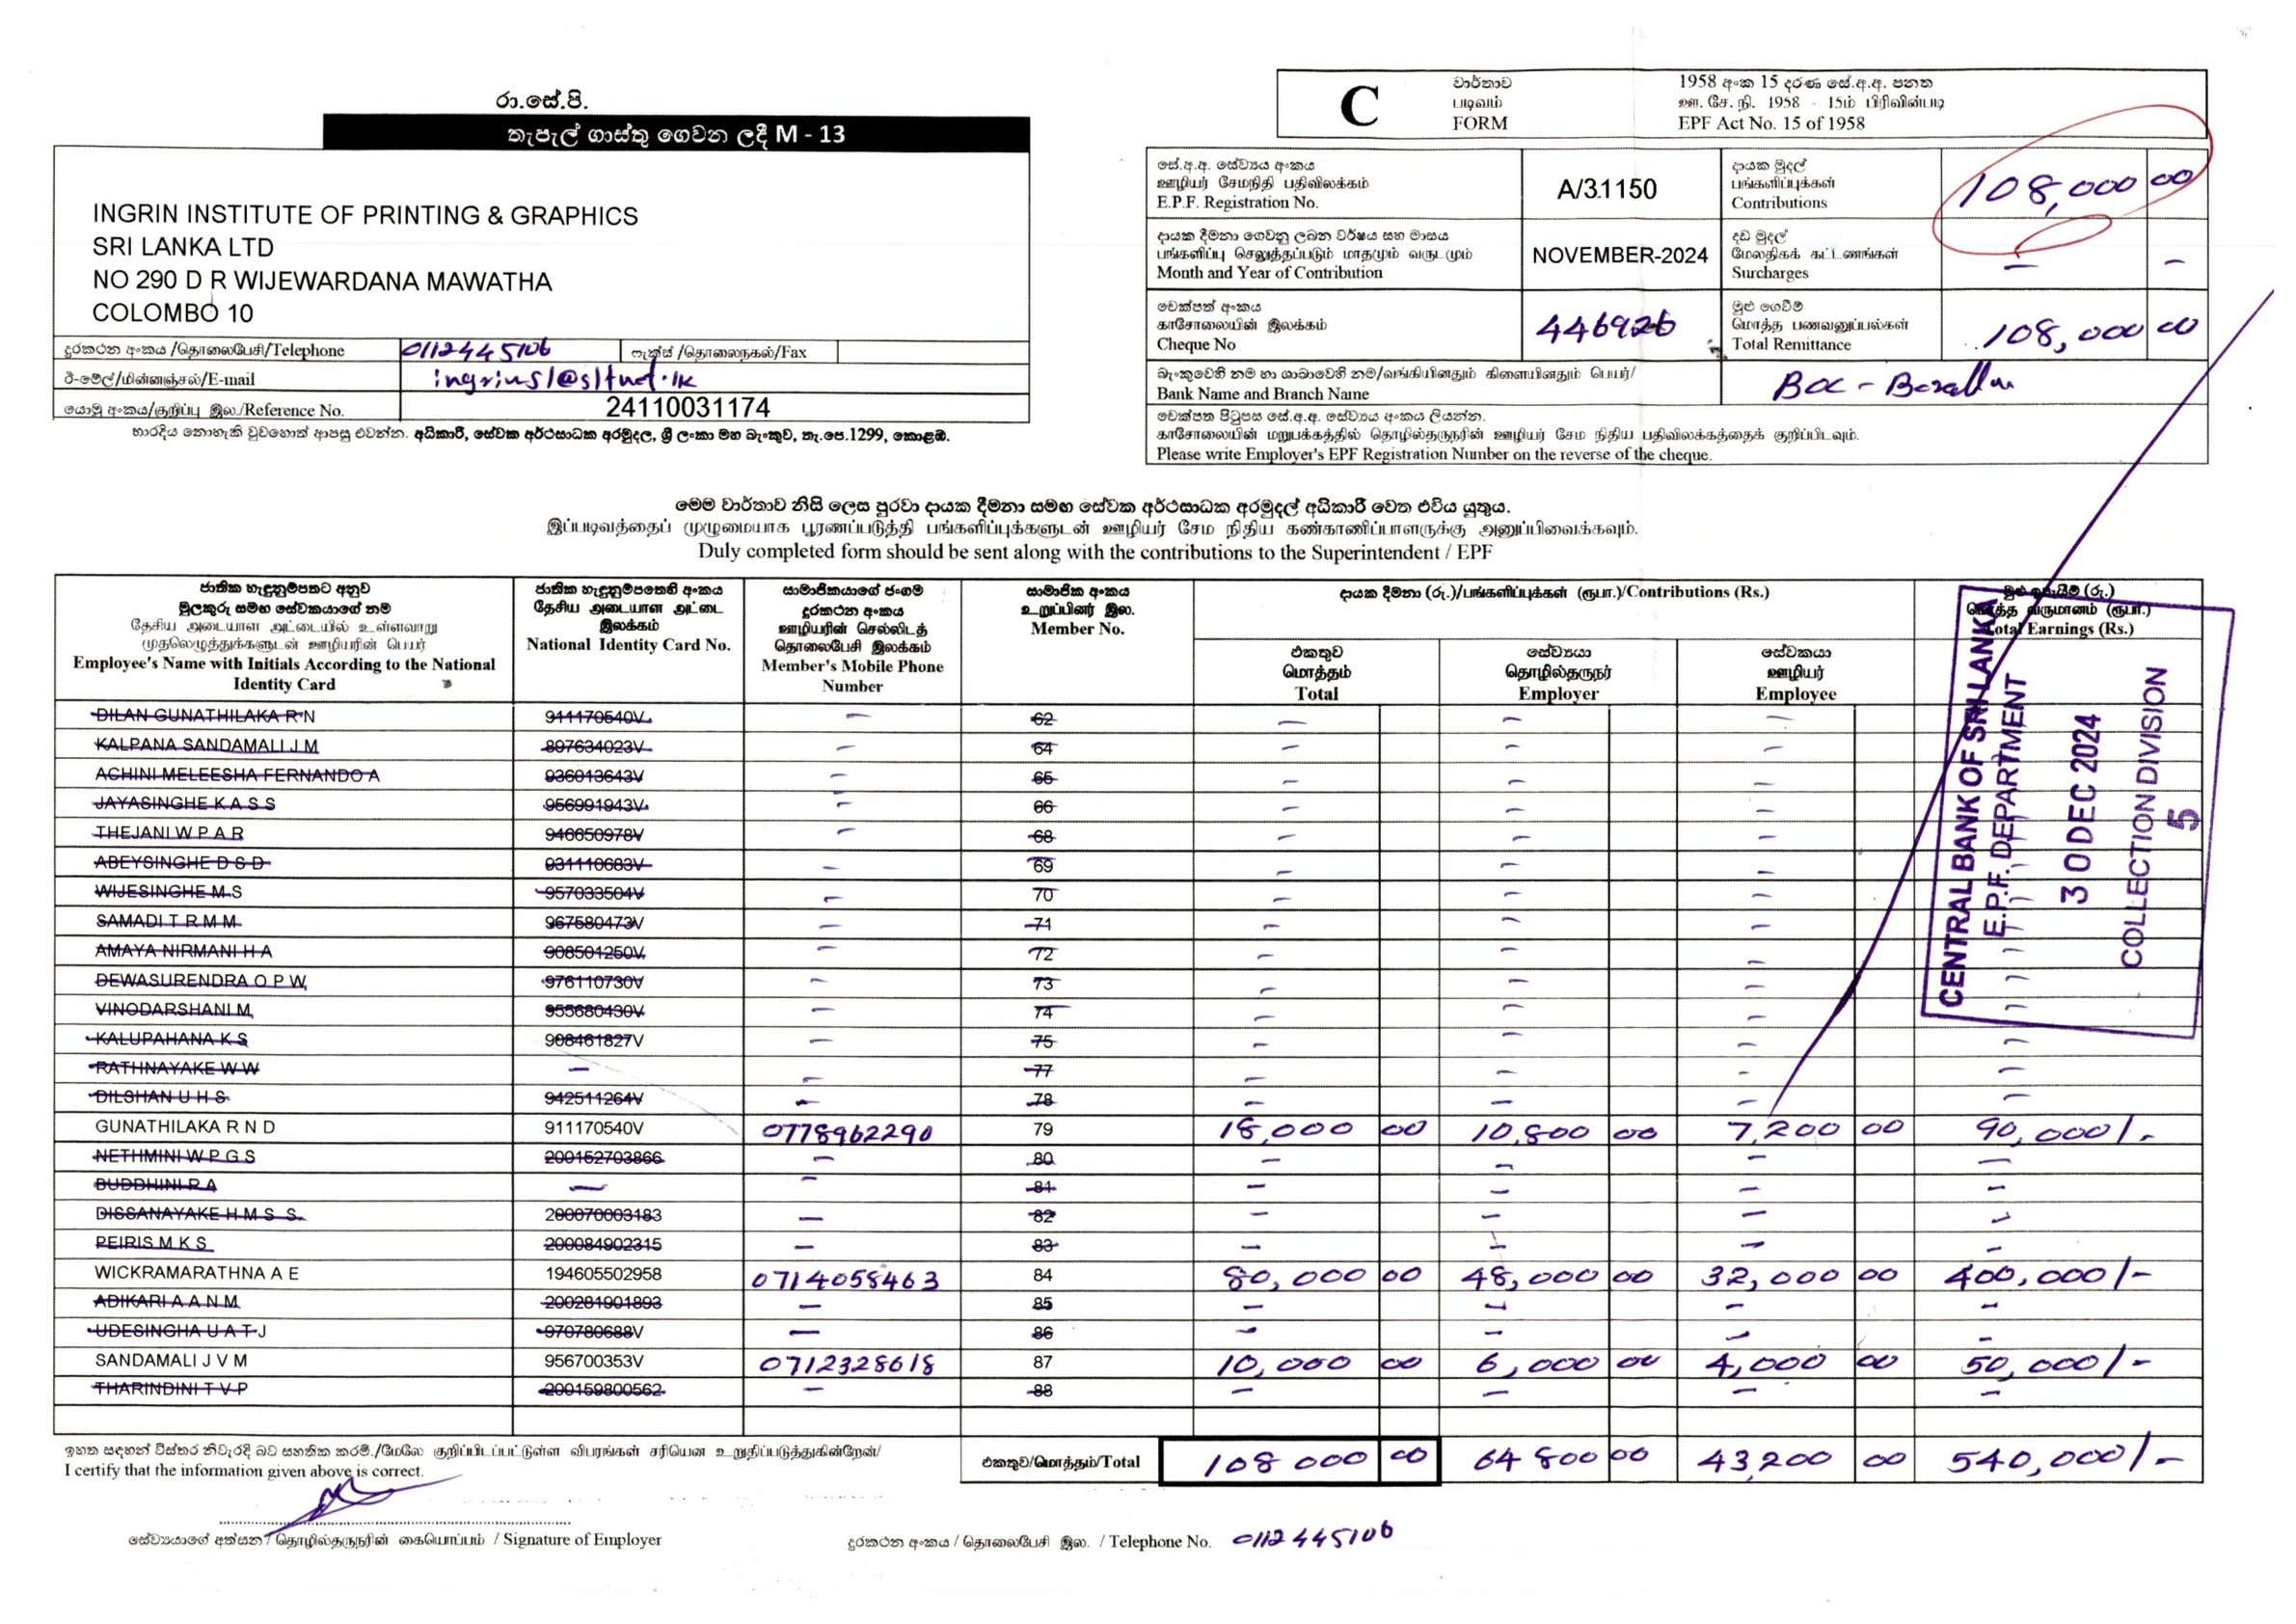 රා.සේ.පි.
තැපැල් ගාස්තු ගෙවන ලදී M - 13
INGRIN INSTITUTE OF PRINTING & GRAPHICS
SRI LANKA LTD
NO 290 D R WIJEWARDANA MAWATHA
COLOMBO 10
දුරකථන අංකය /தொலைபேசி/Telephone 0112445106 ෆැක්ස් /தொலைநகல்/Fax
ඊ-මේල්/மின்னஞ்சல்/E-mail ingrinsl@sltnet.lk
යොමු අංකය/குறிப்பு இல./Reference No. 24110031174
භාරදිය නොහැකි වුවහොත් ආපසු එවන්න. අධිකාරී, සේවක අර්ථසාධක අරමුදල, ශ්‍රී ලංකා මහ බැංකුව, තැ.පෙ.1299, කොළඹ.
C
වාර්තාව
படிவம்
FORM
1958 අංක 15 දරණ සේ.අ.අ. පනත
ஊ. சே. நி. 1958 - 15ம் பிரிவின்படி
EPF Act No. 15 of 1958
සේ.අ.අ. සේව්‍යය අංකය
ஊழியர் சேமநிதி பதிவிலக்கம்
E.P.F. Registration No.
A/31150
දායක මුදල්
பங்களிப்புக்கள்
Contributions
108,000 00
දායක දීමනා ගෙවනු ලබන වර්ෂය සහ මාසය
பங்களிப்பு செலுத்தப்படும் மாதமும் வருடமும்
Month and Year of Contribution
NOVEMBER-2024
දඩ මුදල්
மேலதிகக் கட்டணங்கள்
Surcharges
– –
චෙක්පත් අංකය
காசோலையின் இலக்கம்
Cheque No
446926
මුළු ගෙවීම්
மொத்த பணவனுப்பல்கள்
Total Remittance
108,000 00
බැංකුවෙහි නම හා ශාඛාවෙහි නම/வங்கியினதும் கிளையினதும் பெயர்/
Bank Name and Branch Name
BOC -
චෙක්පත පිටුපස සේ.අ.අ. සේව්‍යය අංකය ලියන්න.
காசோலையின் மறுபக்கத்தில் தொழில்தருநரின் ஊழியர் சேம நிதிய பதிவிலக்கத்தைக் குறிப்பிடவும்.
Please write Employer's EPF Registration Number on the reverse of the cheque.
මෙම වාර්තාව නිසි ලෙස පුරවා දායක දීමනා සමඟ සේවක අර්ථසාධක අරමුදල් අධිකාරී වෙත එවිය යුතුය.
இப்படிவத்தைப் முழுமையாக பூரணப்படுத்தி பங்களிப்புக்களுடன் ஊழியர் சேம நிதிய கண்காணிப்பாளருக்கு அனுப்பிவைக்கவும்.
Duly completed form should be sent along with the contributions to the Superintendent / EPF
ජාතික හැඳුනුම්පතට අනුව
මුලකුරු සමඟ සේවකයාගේ නම
தேசிய அடையாள அட்டையில் உள்ளவாறு
முதலெழுத்துக்களுடன் ஊழியரின் பெயர்
Employee's Name with Initials According to the National
Identity Card
ජාතික හැඳුනුම්පතෙහි අංකය
தேசிய அடையாள அட்டை
இலக்கம்
National Identity Card No.
සාමාජිකයාගේ ජංගම
දුරකථන අංකය
ஊழியரின் செல்லிடத்
தொலைபேசி இலக்கம்
Member's Mobile Phone
Number
සාමාජික අංකය
உறுப்பினர் இல.
Member No.
දායක දීමනා (රු.)/பங்களிப்புக்கள் (ரூபா.)/Contributions (Rs.)
එකතුව
மொத்தம்
Total
සේව්‍යයා
தொழில்தருநர்
Employer
සේවකයා
ஊழியர்
Employee
මුළු ඉපැයීම් (රු.)
மொத்த வருமானம் (ரூபா.)
Total Earnings (Rs.)
DILAN GUNATHILAKA R N 911170540V – 62 – – –
KALPANA SANDAMALI J M 897634023V – 64 – – –
ACHINI MELEESHA FERNANDO A 936013643V – 65 – – –
JAYASINGHE K A S S 956991943V – 66 – – –
THEJANI W P A R 946650978V – 68 – – –
ABEYSINGHE D S D 931110683V – 69 – – –
WIJESINGHE M S 957033504V – 70 – – –
SAMADI T R M M 967580473V – 71 – – –
AMAYA NIRMANI H A 908501250V – 72 – – –
DEWASURENDRA O P W 976110730V – 73 – – –
VINODARSHANI M 955680430V – 74 – – – –
KALUPAHANA K S 908461827V – 75 – – – –
RATHNAYAKE W W – – 77 – – – –
DILSHAN U H S 942511264V – 78 – – – –
GUNATHILAKA R N D 911170540V 0778962290 79 18,000 00 10,800 00 7,200 00 90,000/-
NETHMINI W P G S 200152703866 – 80 – – – –
BUDDHINI R A – – 81 – – – –
DISSANAYAKE H M S S. 200070003183 – 82 – – – –
PEIRIS M K S 200084902315 – 83 – – – –
WICKRAMARATHNA A E 194605502958 0714058463 84 80,000 00 48,000 00 32,000 00 400,000/-
ADIKARI A A N M 200281901893 – 85 – – – –
UDESINGHA U A T J 970780688V – 86 – – – –
SANDAMALI J V M 956700353V 0712328618 87 10,000 00 6,000 00 4,000 00 50,000/-
THARINDINI T V P 200159800562 – 88 – – – –
එකතුව/மொத்தம்/Total 108 000 00 64 800 00 43,200 00 540,000/-
CENTRAL BANK OF SRI LANKA
E.P.F. DEPARTMENT
30 DEC 2024
COLLECTION DIVISION
5
ඉහත සඳහන් විස්තර නිවැරදි බව සහතික කරමි./மேலே குறிப்பிடப்பட்டுள்ள விபரங்கள் சரியென உறுதிப்படுத்துகின்றேன்/
I certify that the information given above is correct.
සේව්‍යයාගේ අත්සන / தொழில்தருநரின் கையொப்பம் / Signature of Employer
දුරකථන අංකය / தொலைபேசி இல. / Telephone No. 0112445106